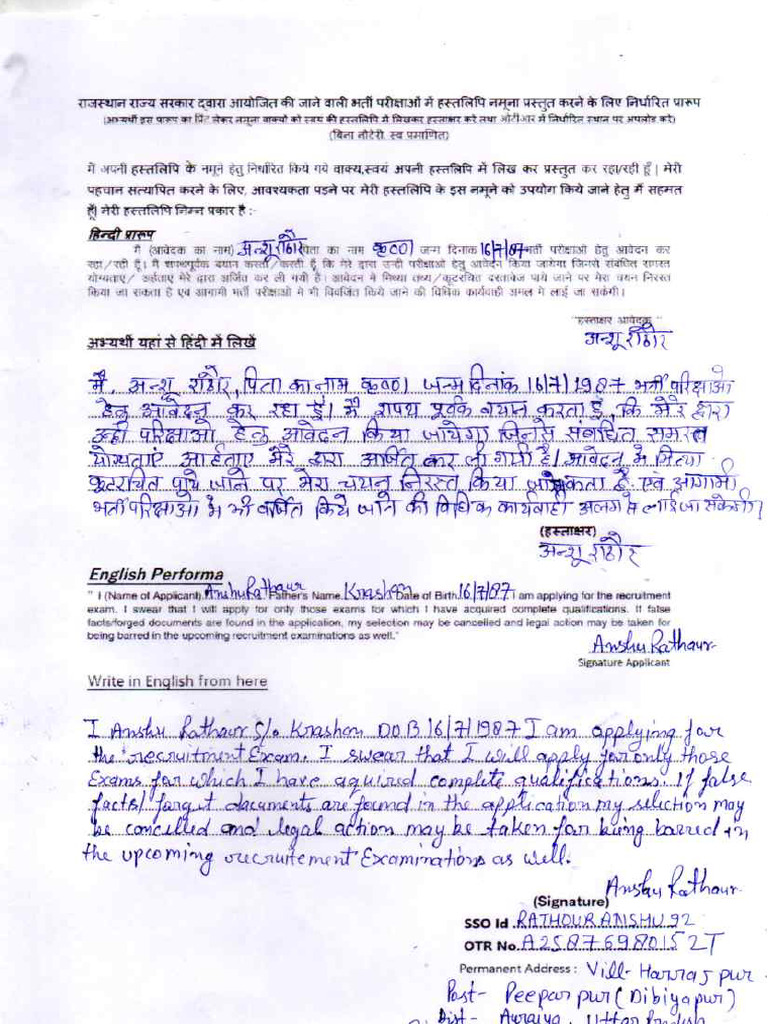 राजस्थान राज्य सरकार द्वारा आयोजित की जाने वाली भर्ती परीक्षाओं में हस्तलिपि नमूना प्रस्तुत करने के लिए निर्धारित प्रारूप
(अभ्यर्थी इस प्रारूप का प्रिंट लेकर नमूना वाक्यों को स्वयं की हस्तलिपि में लिखकर हस्ताक्षर करे तथा ओटीआर में निर्धारित स्थान पर अपलोड करे)
(बिना नोटेरी, स्व प्रमाणित)
में अपनी हस्तलिपि के नमूने हेतु निर्धारित किये गये वाक्य,स्वयं अपनी हस्तलिपि में लिख कर प्रस्तुत कर रहा/रही हूँ | मेरी
पहचान सत्यापित करने के लिए, आवश्यकता पड़ने पर मेरी हस्तलिपि के इस नमूने को उपयोग किये जाने हेतु में सहमत
हूँ| मेरी हस्तलिपि निम्न प्रकार है :-
हिन्दी प्रारूप
मै (आवेदक का नाम) अन्शू राठौर पिता का नाम जन्म दिनांक 16/7/87 भर्ती परीक्षाओं हेतु आवेदन कर
रहा/रही हूँ। मै शपथपूर्वक बयान करता/करती हूँ कि मेरे द्वारा उन्ही परीक्षाओं हेतु आवेदन किया जायेगा जिनसे संबंधित समस्त
योग्यताएं/ अर्हताए मेरे द्वारा अर्जित कर ली गयी है। आवेदन मे मिथ्या तथ्य/कूटरचित दस्तावेज पाये जाने पर मेरा चयन निरस्त
किया जा सकता है एवं आगामी भर्ती परीक्षाओं मे भी विवर्जित किये जाने की विधिक कार्यवाही अमल मे लाई जा सकेगी।
"हस्ताक्षर आवेदक "
अन्शू राठौर
अभ्यर्थी यहां से हिंदी में लिखें
मैं, अन्शू राठौर, पिता का नाम जन्म दिनांक 16/7/1987 भर्ती परिक्षाओ
हेतु आवेदन कर रहा हूँ। मैं शपथ पूर्वक बयान करता हूँ, कि मेरे द्वारा
उन्ही परिक्षाओ हेतु आवेदन किया जायेगा जिनसे संबधित समस्त
योग्यताएं आर्हताए मेरे द्वारा आर्जित कर ली गयी है। आवेदन मे मिथ्या
कूटरचित पाये जाने पर मेरा चयन निरस्त किया जा सकता है एवं आगामी
भर्ती परिक्षाओ मे भी वर्जित किये जाने की विधिक कार्यवाही अलग से लाई जा सकेगी।
(हस्ताक्षर)
अन्शू राठौर
English Performa
" I (Name of Applicant) Anshu Rathaur Father's Name Krashon Date of Birth 16/7/87 I am applying for the recruitment
exam. I swear that I will apply for only those exams for which I have acquired complete qualifications. If false
facts/forged documents are found in the application, my selection may be cancelled and legal action may be taken for
being barred in the upcoming recruitment examinations as well."
Anshu Rathaur
Signature Applicant
Write in English from here
I Anshu Rathaur S/o Krashon D O B 16/7/1987 I am applying for
the recruitment Exam. I swear that I will apply for only those
Exams for which I have aquired complete qualifications. If false
facts/ forgut documents are found in the application my silection may
be concelled and legal action may be taken for being barred in
the upcoming recruitement Examinations as well.
Anshu Rathaur
(Signature)
SSO Id RATHOURANSHU92
OTR No. A25876980152T
Permanent Address : Vill- Harraj pur
Post- Peepar pur (Dibiyapur)
Dist- Auraiya, Uttar Pradesh